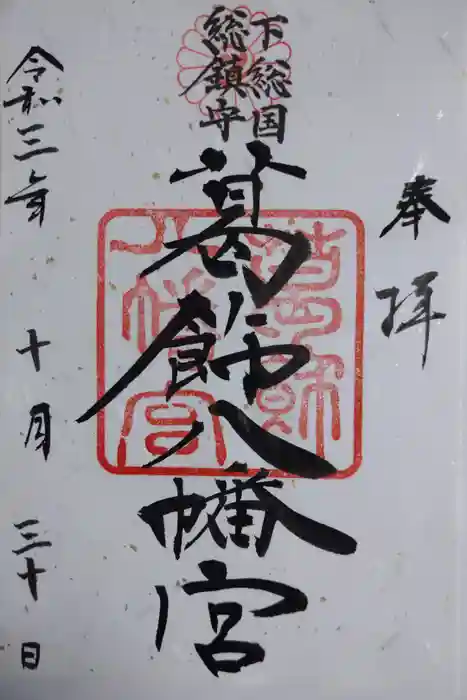 奉拝
下総国
総鎮守
葛飾八幡宮
令和三年十月三十日
葛飾
八幡宮